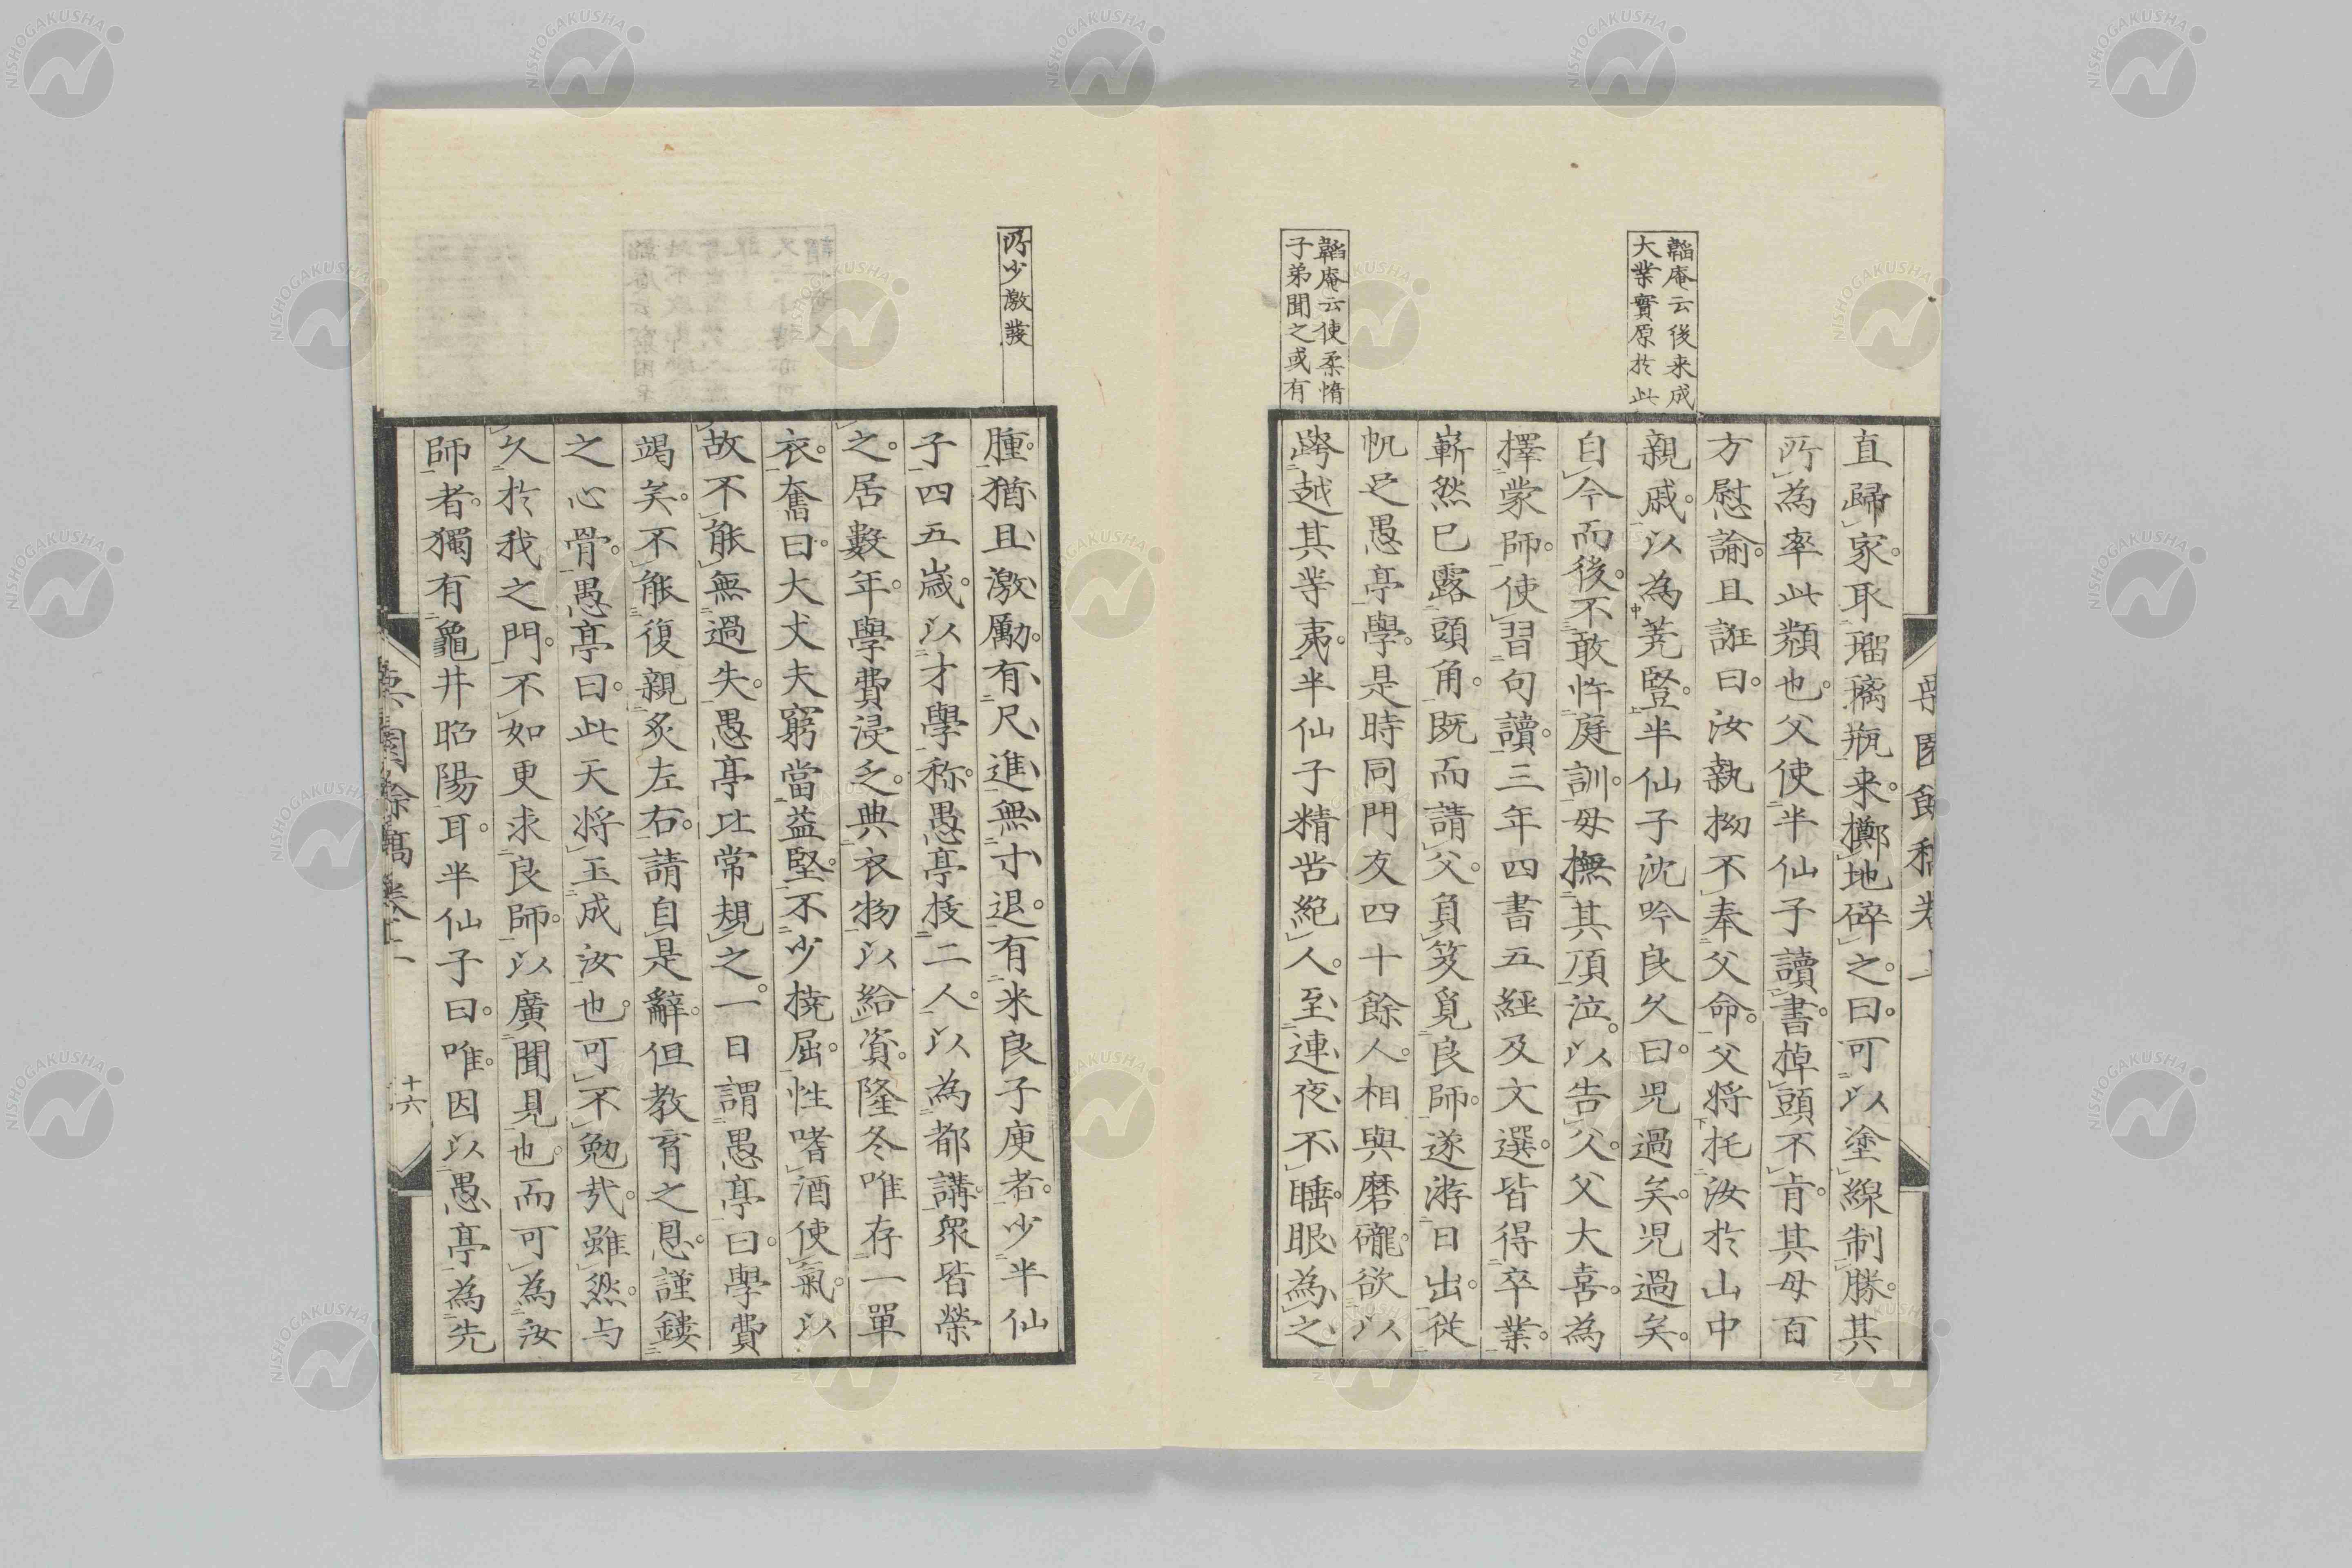 韜庵云後来成
大業實原於此
韜庵云使柔惰
子弟聞之或有
直歸家取瑠璃瓶来擲地碎之曰可以塗線制勝其
所為率此類也父使半仙子讀書掉頭不肯其母百
方慰諭且誑曰汝執拗不奉父命父将托汝於山中
親戚以為蕘豎半仙子沈吟良久曰児過矣児過矣
自今而後不敢忤庭訓母撫其頂泣以告父父大喜為
擇蒙師使習句讀三年四書五経及文選皆得卒業
嶄然已露頭角既而請父負笈覓良師遂游日出従
帆足愚亭學是時同門友四十餘人相與磨礲欲以
跨越其等夷半仙子精苦絶人至連夜不睡眼為之
所少激發
腫猶且激勵有尺進無寸退有米良子庚者少半仙
子四五歳以才學称愚亭抜二人以為都講衆皆榮
之居數年學費浸乏典衣物以給資隆冬唯存一單
衣奮曰大丈夫窮當益堅不少撓屈性嗜酒使氣以
故不能無過失愚亭比常規之一日謂愚亭曰學費
竭矣不能復親炙左右請自是辭但教育之恩謹鏤
之心骨愚亭曰此天将玉成汝也可不勉哉雖然与
久於我之門不如更求良師以廣聞見也而可為汝
師者獨有龜井昭陽耳半仙子曰唯因以愚亭為先
十六